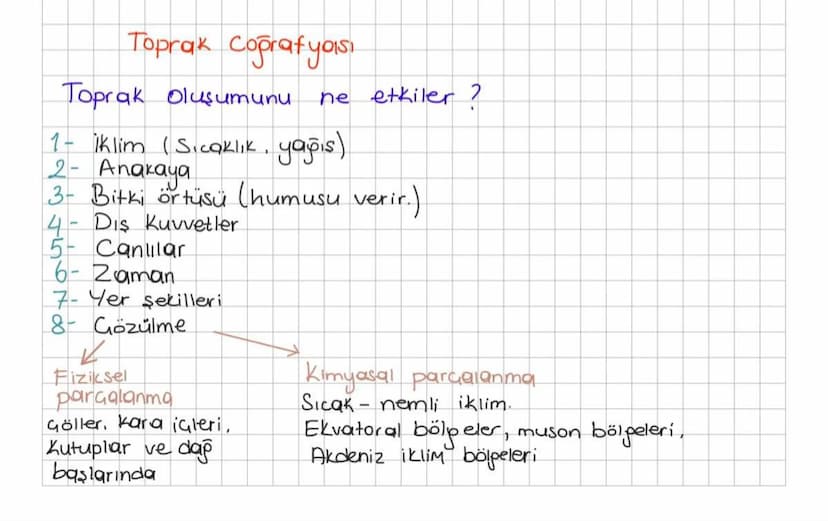 Toprak Coğrafyası
Toprak oluşumunu ne etkiler?
1- İklim (Sıcaklık, yağış)
2- Anakaya
3- Bitki örtüsü (humusu verir.)
4- Dış Kuvvetler
5- Canlılar
6- Zaman
7- Yer şekilleri
8- Çözülme
Fiziksel parçalanma
Çöller, kara içleri,
Kutuplar ve dağ
başlarında
Kimyasal parçalanma
Sıcak - nemli iklim.
Ekvatoral bölgeler, muson bölgeleri,
Akdeniz iklim bölgeleri